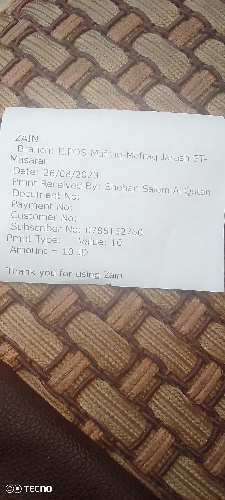 ZAIN
Branch: E.POS-Mafraq-Mafraq Jarash ST-
Masarat
Date: 26/08/2023
Pmnt Received By: Salem Al
Document No:
Payment No:
Customer No:
Subscriber No:
Pmnt Type: Value: 10
Amount = 10 JD
Thank you for using Zain
TECNO